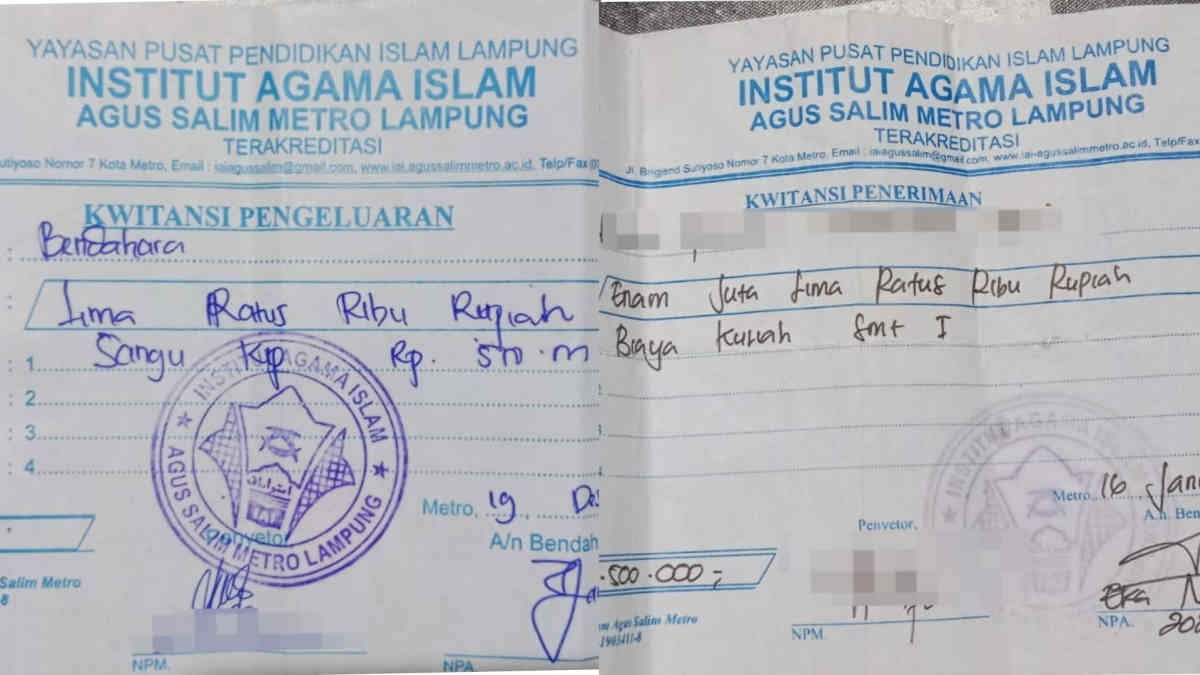 YAYASAN PUSAT PENDIDIKAN ISLAM LAMPUNG
INSTITUT AGAMA ISLAM
AGUS SALIM METRO LAMPUNG
TERAKREDITASI
utiyoso Nomor 7 Kota Metro, Email : iaiagussalim@gmail.com, www.iai-agussalimmetro.ac.id, Telp/Fax
KWITANSI PENGELUARAN
: Bendahara
: Lima Ratus Ribu Rupiah
: 1. Sangu Kip Rp. 500.
: 2.
: 3.
: 4.
INSTITUT AGAMA ISLAM
AGUS SALIM METRO LAMPUNG
Metro, 19, Des
Penyetor
A/n Bendah
Salim Metro
8
NPM.
NPA
YAYASAN PUSAT PENDIDIKAN ISLAM LAMPUNG
INSTITUT AGAMA ISLAM
AGUS SALIM METRO LAMPUNG
TERAKREDITASI
Jl. Brigend Sutiyoso Nomor 7 Kota Metro, Email : iaiagussalim@gmail.com, www.iai-agussalimmetro.ac.id, Telp/Fax
KWITANSI PENERIMAAN
Enam Juta Lima Ratus Ribu Rupiah
Biaya Kuliah Smt I
Metro, 16 Jan
Penyetor,
A.n. Ben
.500.000,-
Agus Salim Metro
1903411-8
Eka
NPM.
NPA.